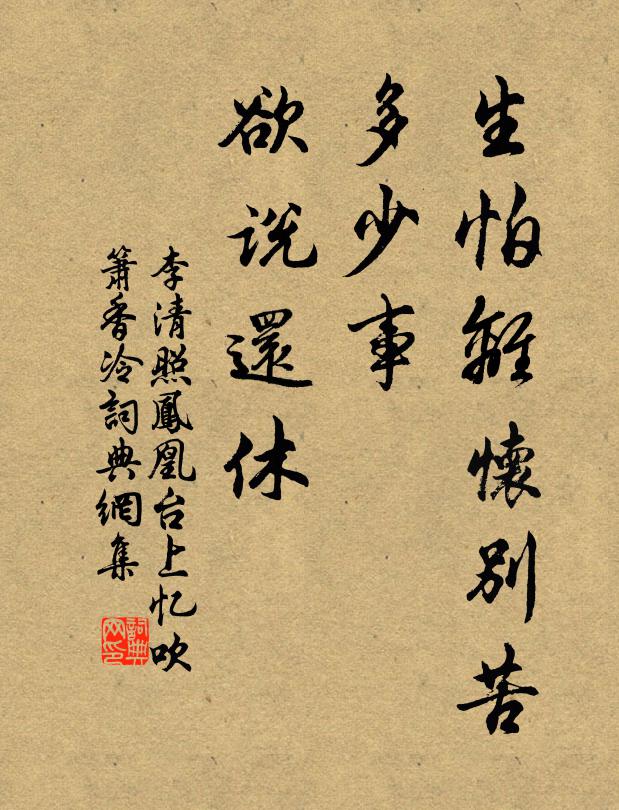 生怕離懷別苦
多少事
欲说還休
李清照鳳凰台上忆吹
簫香冷詞典網集
詞典
网印